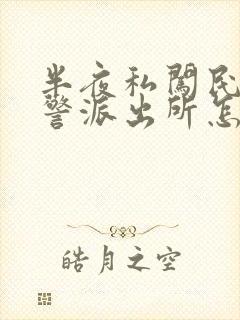 半夜私闯民
警派出所怎
皓月之空